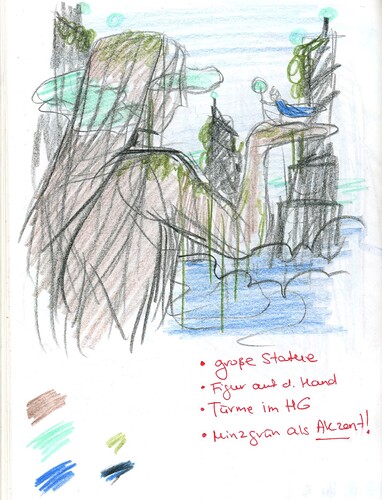 • große Statue
• Figur auf d. Hand
• Türme im HG
• Minzgrün als Akzent!